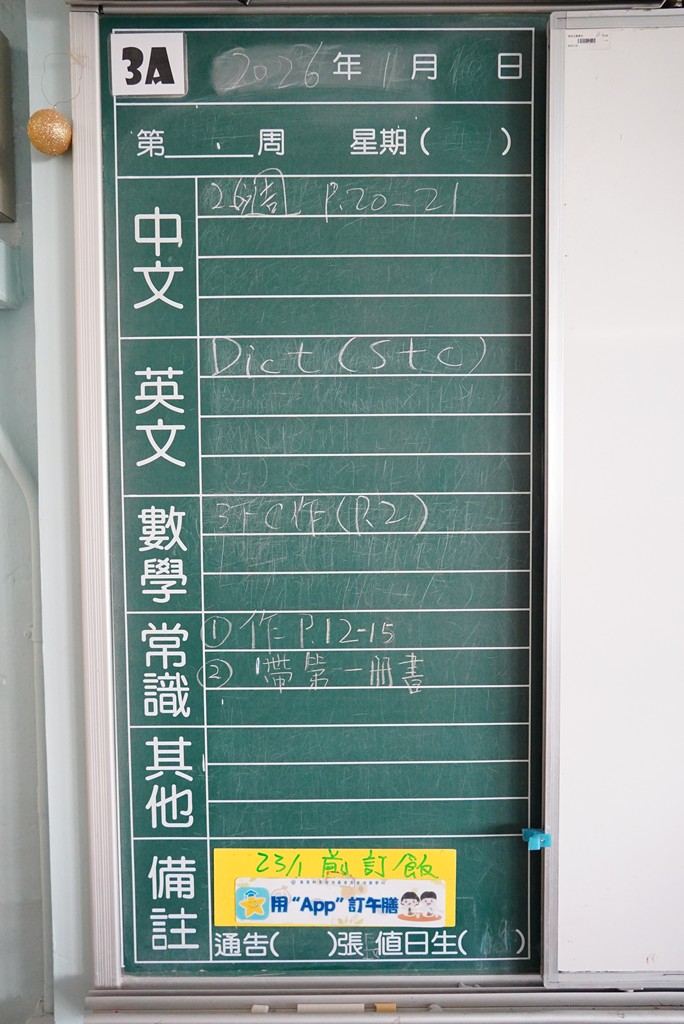 3A
2026年1月 日
第 周 星期( )
中文
26週 P.20-21
英文
Dict (S+C)
數學
3下C作(P.2)
常識
① 作P.12-15
② 帶第一冊書
其他
備註
23/1 前訂飯
用“App”訂午膳
通告( )張 值日生( )